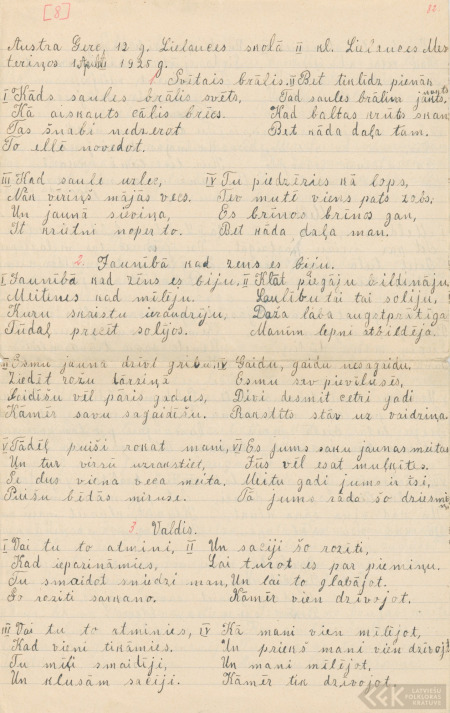 [8]
10.
Austra Gerc, 12 g. Lielauces skolā II kl. Lielauces Mes-
teriņos 1925 g.
1. Svētais brālis.
I Kāds saules brālis svēts,
Kā aiskauts cālis brēcs.
Tas šnabi nedzerot
To ellē novedot.
II Bet tiklīdz pienāk nagts
Tad saules brālim jākts.
Kad baltas krūts skan
Bet kāda daļa tam.
III Kad saule uzlec,
Nāk vīriņš mājās vecs.
Un jaunā sieviņa,
It krietni noper to.
IV Tu piedzēries kā lops,
Tev mutē viens pats zobs.
Es brīnos brīnos gan,
Bet kāda daļa man.
2. Jaunībā kad zēns es biju.
I Jaunībā kad zēns es biju,
Meitenes kad mīlēju.
Kuru skaistu ieraudzīju,
Tūdaļ precēt solījos.
II Klāt piegāju bildināju,
Laulību tai tai solīju,
Daža laba augstprātīga
Manim lepni atbildēja.
III Esmu jauna dzīvot gribu,
Ziedēt rožu dārziņā
Gaidīšu vēl pāris gadus,
Kāmēr savu sagaidīšu.
IV Gaidu, gaidu nesagaidu,
Esmu sev pievīlusēs,
Divi desmit cetri gadi
Rakstīts stāv uz vaidziņa.
V Tādēļ puiši rokat mani,
Un tur virsū uzrakstiet,
Še dus viena veca meita,
Puišu bēdās miruse.
VI Es jums saku jaunas meitas
Jūs vēl esat muļķītes.
Meitu gadi jums ir īsi,
Tā jums rāda šo dziesmiņu
3. Valdis.
I Vai tu to atmini,
Kad iepazināmies,
Tu smaidot sniedzi man,
So roziti sarkano.
II Un saciji šo roziti,
Lai turot es par piemiņu.
Un lai to glabājot.
Kāmēr vien dzīvojot.
III Vai tu to atminies,
Kad vieni tikāmies.
Tu mīļi smaidīji,
Un klusām saciji.
IV Kā mani vien mīlējot,
Un priekš mani vien dzīvojot
Un mani mīlējot,
Kāmēr tik dzīvojot.
LATVIEŠU
FOLKLORAS
KRĀTUVE